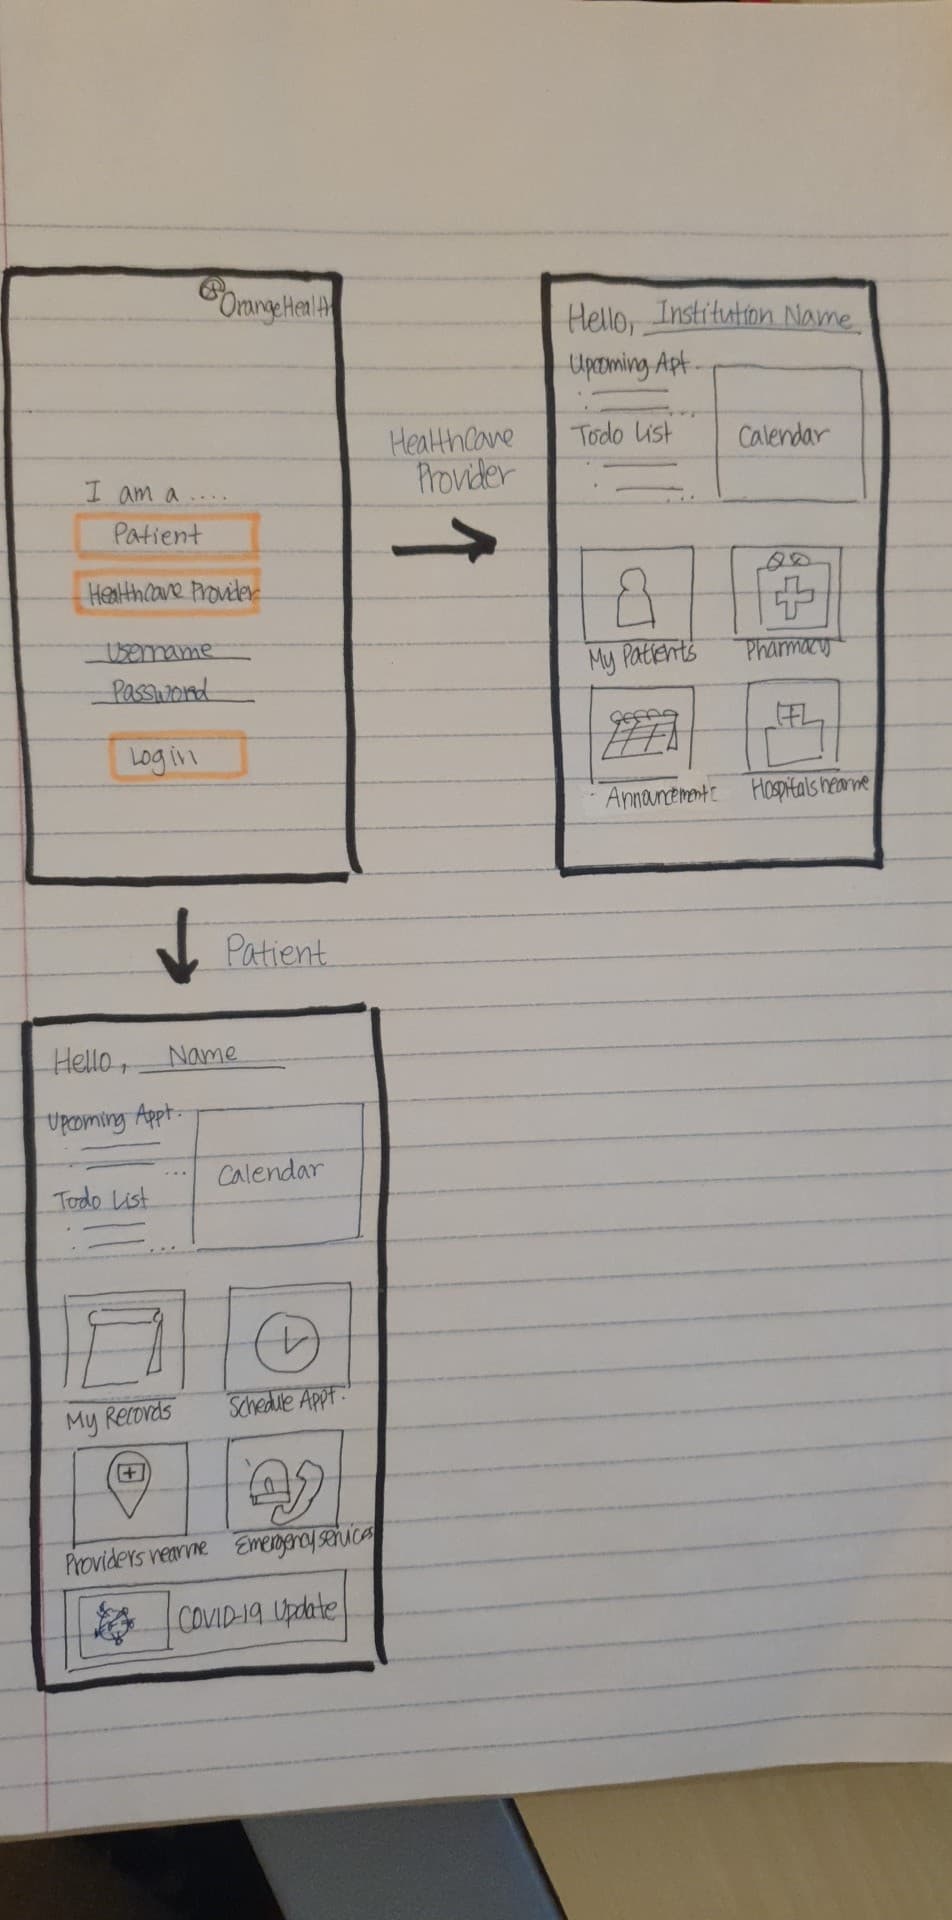 OrangeHealth
I am a ....
Patient
Healthcare Provider
Username
Password
Login
Healthcare
Provider
Hello, Institution Name
Upcoming Apt.
Todo List
Calendar
My Patients
Pharmacy
Announcements
Hospitals near me
Patient
Hello, Name
Upcoming Appt.
Todo List
Calendar
My Records
Schedule Appt.
Providers near me
Emergency services
COVID-19 Update